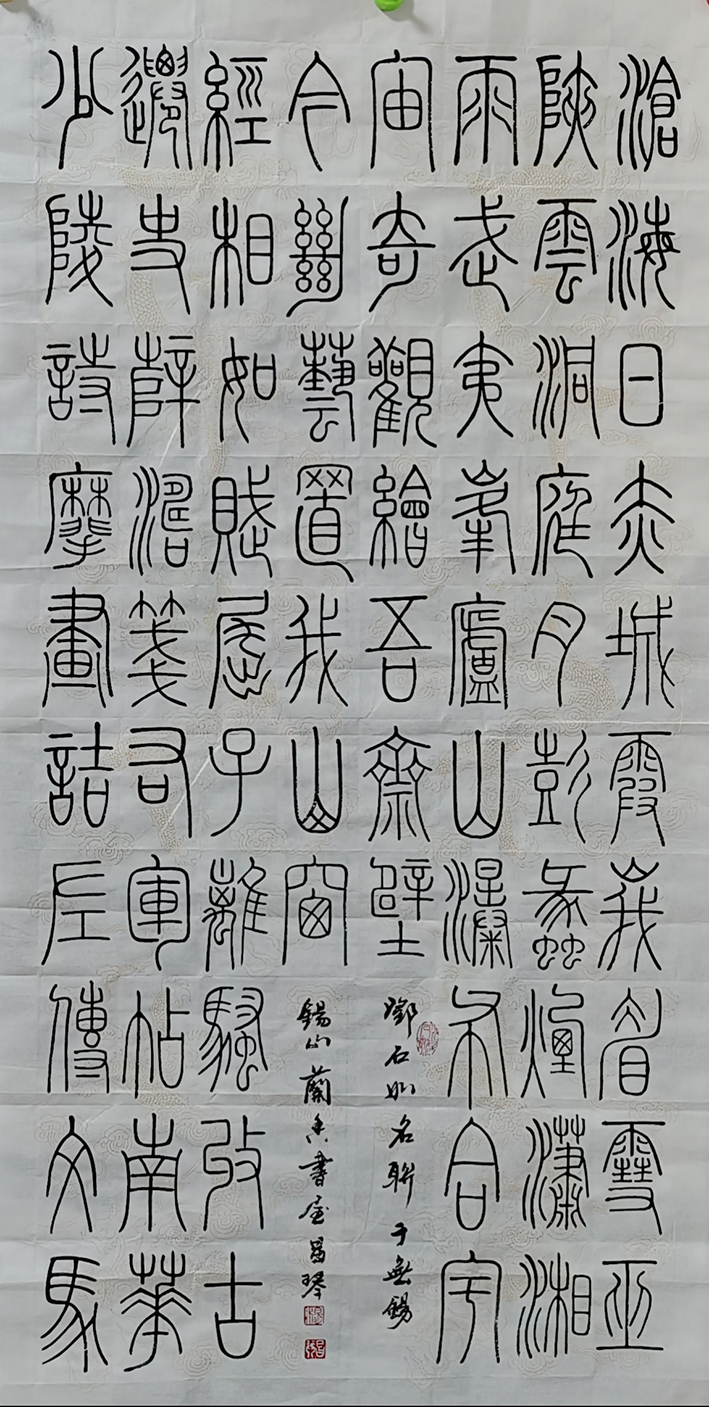 滄海日赤城霞峨眉雪巫
陜雲洞庭月彭蠡煙瀟湘
雨武夷峯廬山瀑布合宇
宙奇觀繪吾齋壁
鄧石如名聯于無錫
少陵詩摩畫詰左傳文馬
遷史薛濤箋右軍帖南華
經相如賦屈子離騷收古
今絕藝置我山窗
錫山蘭香書屋昌琴